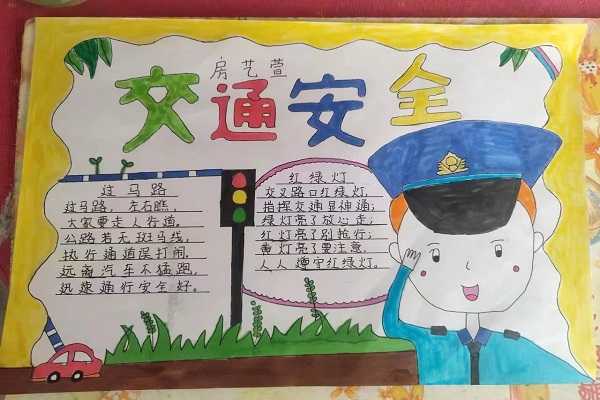 房艺萱
交通安全
过马路
过马路,左右瞧,
大家要走人行道。
公路若无斑马线,
执行通道误打闹,
远离汽车不猛跑,
迅速通行安全好。
红绿灯
交叉路口红绿灯,
指挥交通显神通;
绿灯亮了放心走;
红灯亮了别抢行;
黄灯亮了要注意,
人人遵守红绿灯。